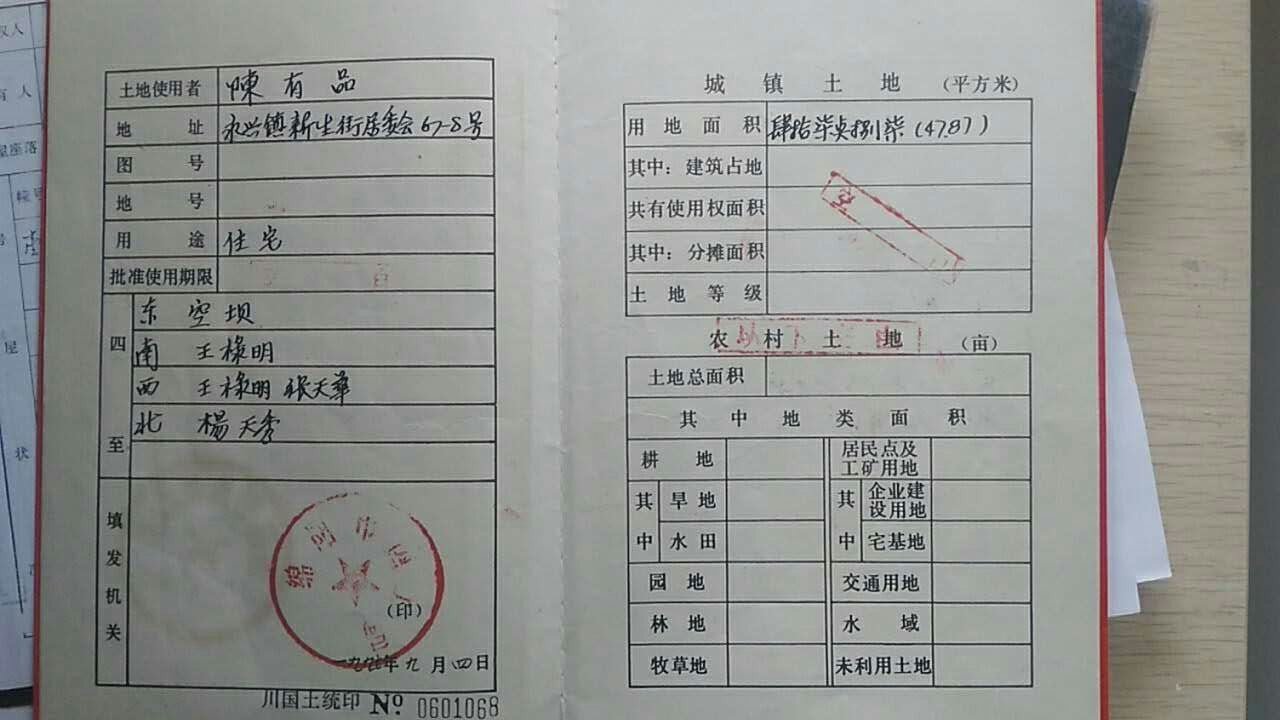 土地使用者 陳有品
地址 永兴镇新生街居委会67-8号
图号
地号
用途 住宅
批准使用期限
四至
东 空坝
南 王禄明
西 王禄明 张天华
北 楊天秀
填发机关
(印)
一九九七年九月四日
川国土统印 № 0601068
城镇土地 (平方米)
用地面积 肆拾柒点捌柒(47.87)
其中：建筑占地
共有使用权面积
其中：分摊面积
土地等级
农村土地 (亩)
土地总面积
其中地类面积
耕地 居民点及工矿用地
其中 旱地 其中 企业建设用地
水田 宅基地
园地 交通用地
林地 水域
牧草地 未利用土地